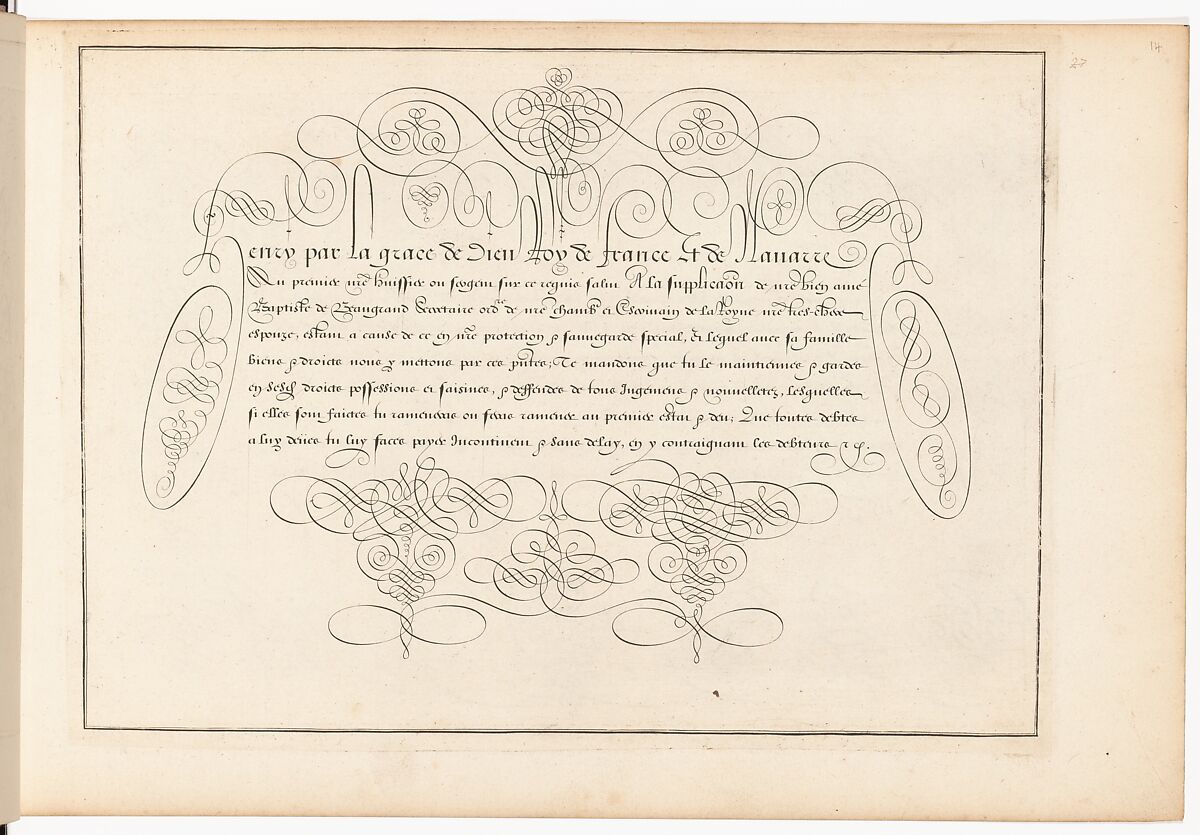 14
27
enry par La grace de Dieu Roy de france Et de Navarre
Au premier nr̃e huissier ou sergent sur ce requis salut A la supplicaõn de nr̃e bien amé
Baptiste de Beaugrand Secretaire ordre de nr̃e chamb. et Escrivain de la Royne nr̃e tres-chere
espouze, estant a cause de ce en nr̃e protection & sauvegarde special, Et lequel avec sa famille
biens & droicts nous y mettons par ces pñtes; Te mandons que tu le maintiennes & gardes
en droicts possessions et saisines, & deffendes de tous Ingemens & nouvelletez, Lesquelles
si elles sont faictes tu rameneras ou feras ramener au premier estat & deu; Que toutes debtes
a luy deües tu luy faces payer Incontinent & sans delay, en y contraignant les debteurs